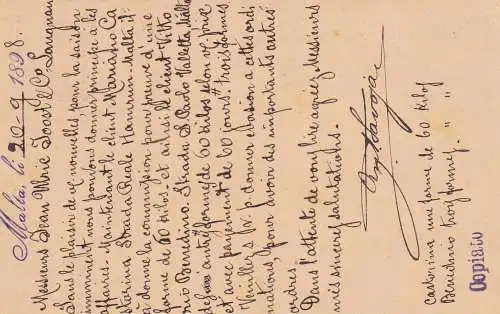 Malta, li 20-9-1898.
Messieurs Jean Marie Joost & Co. Lougnan
Sans le plaisir de vos nouvelles pour la saison
imminent nous pouvons donner principe à les
affaires. Maintenant le client Mariano Ca
storina Strada Reale Hamrun - Malta il
a donné la commission pour preuve d'une
forme de 60 kilos. et ainsi le client Vitto
rio Bencidino. Strada S. Paolo Valletta Malta
des autres formes de 60 kilos selon vos prix
et avec payement de 60 jours. trois formes
Veuillez donner evasion a cettes ordi
nations, pour avoir des importants autres
ordres.
Dans l'attente de vous lire agréez, Messieurs
mes sincères salutations.
Castorina une forme de 60 Kilos
Bencidino trois formes. " " "
Copiato